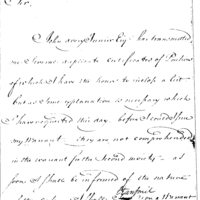 Sir,
John Avery Junior Esqr. has transmitted
me several duplicate Certificates of Pensions
of which I have the honor to inclose a List
but as some explanation is necessary which
I have requested this day, before I could issue
my Warrant they are not comprehended
in the warrant for the second months – as
soon I shall be informed of the nature
a Warrant